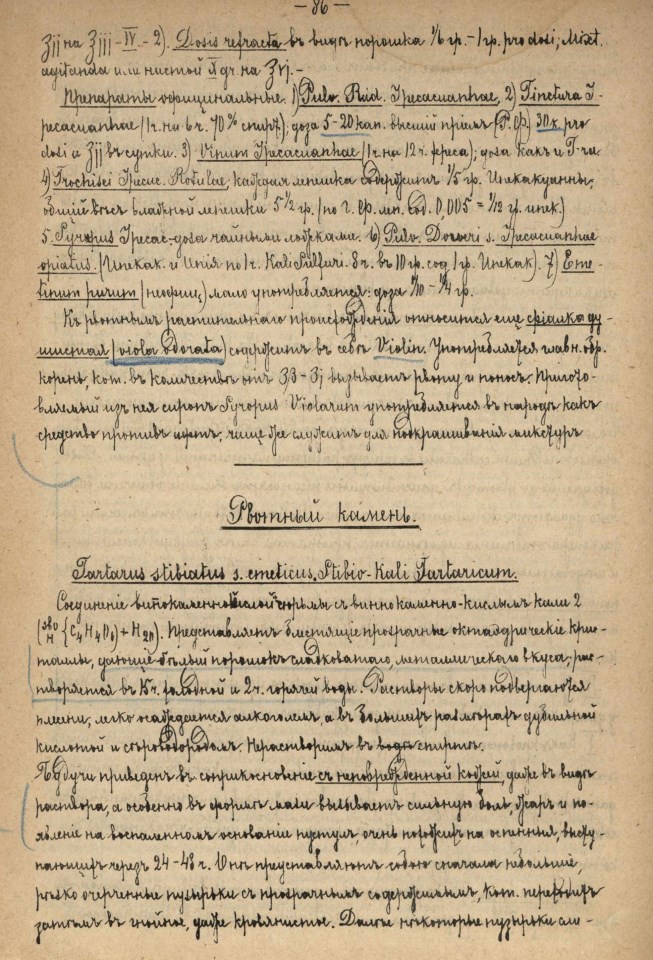 — 86 —
ʒjj на ʒjjj – IV. – 2). Dosis refracta въ видѣ порошка 1/6 гр. – 1 гр. pro dosi; Mixt.
agitanda или чистой на ʒvj. –
Препараты официнальные. 1) Pulv. Rad. Ipecacuanhae, 2) Tinctura I-
pecacuanhae (1 ч. на 6 ч. 70% спирт.); доза 5–20 кап. высшій пріемъ (Р. Ф.) 30 к. pro
dosi и ʒjj въ сутки. 3) Vinum Ipecacuanhae (1 ч. на 12 ч. хереса); доза какъ и T-ra
4) Trochisci Ipecac. Rotulae; каждая лепешка содержитъ 1/5 гр. Ипекакуанны,
общій вѣсъ влажной лепешки 5 1/2 гр. (по Г. Ф. леп. сод. 0,005 = 1/12 гр. ипек.)
5. Syrupus Ipecac-доза чайными ложками. 6) Pulv. Doveri s. Ipecacuanhae
opiatus. (Ипекак. и Опія по 1 ч. Kali Sulfuri. 8 ч. въ 10 гр. сод. 1 гр. Ипекак). 7) Eme-
tinum purum (неофиц.) мало употребляется: доза 1/10 – 1/4 гр.
Къ рвотнымъ растительнаго происхожденія относится еще фіалка ду-
шистая (viola odorata) содержитъ въ себѣ Violin. Употребляется главн. обр.
корень, кот. въ количествѣ отъ ʒβ – ʒj вызываетъ рвоту и поносъ. Пригото-
вляемый изъ нея сиропъ Syrupus Violarum употребляется въ народѣ какъ
средство противъ чаще же служитъ для подкрашиванія микстуръ
Рвотный камень.
Tartarus stibiatus s. emeticus, Stibio-Kali Tartaricum.
Соединеніе виннокаменнокислой сюрьмы съ винно каменно-кислымъ кали 2
C4H4O6) + H2O). Представляетъ блестящіе прозрачные октаэдрическіе кри-
сталлы, дающіе бѣлый порошокъ сладковатаго, металлическаго вкуса; рас-
творяется въ 15 ч. холодной и 2 ч. горячей воды. Растворы скоро подвергаются
плесни, легко осаждается алкоголемъ, а въ большихъ размѣрахъ дубильной
кислотой и сѣроводородомъ. Нерастворимъ въ спиртѣ.
Будучи приведенъ въ соприкосновеніе съ неповрежденной кожей, даже въ видѣ
раствора, а особенно въ формѣ мази вызываетъ сильную боль, жаръ и по-
явленіе на воспаленномъ основаніи пустулъ, очень похожихъ на оспенныя, высту-
пающихъ черезъ 24–48 ч. Онѣ представляютъ собою сначала небольшіе,
рѣзко очерченные пузырьки съ прозрачнымъ содержимымъ, кот. переходитъ
затѣмъ въ гнойное, даже кровянистое. Далѣе нѣкоторые пузырьки сли-